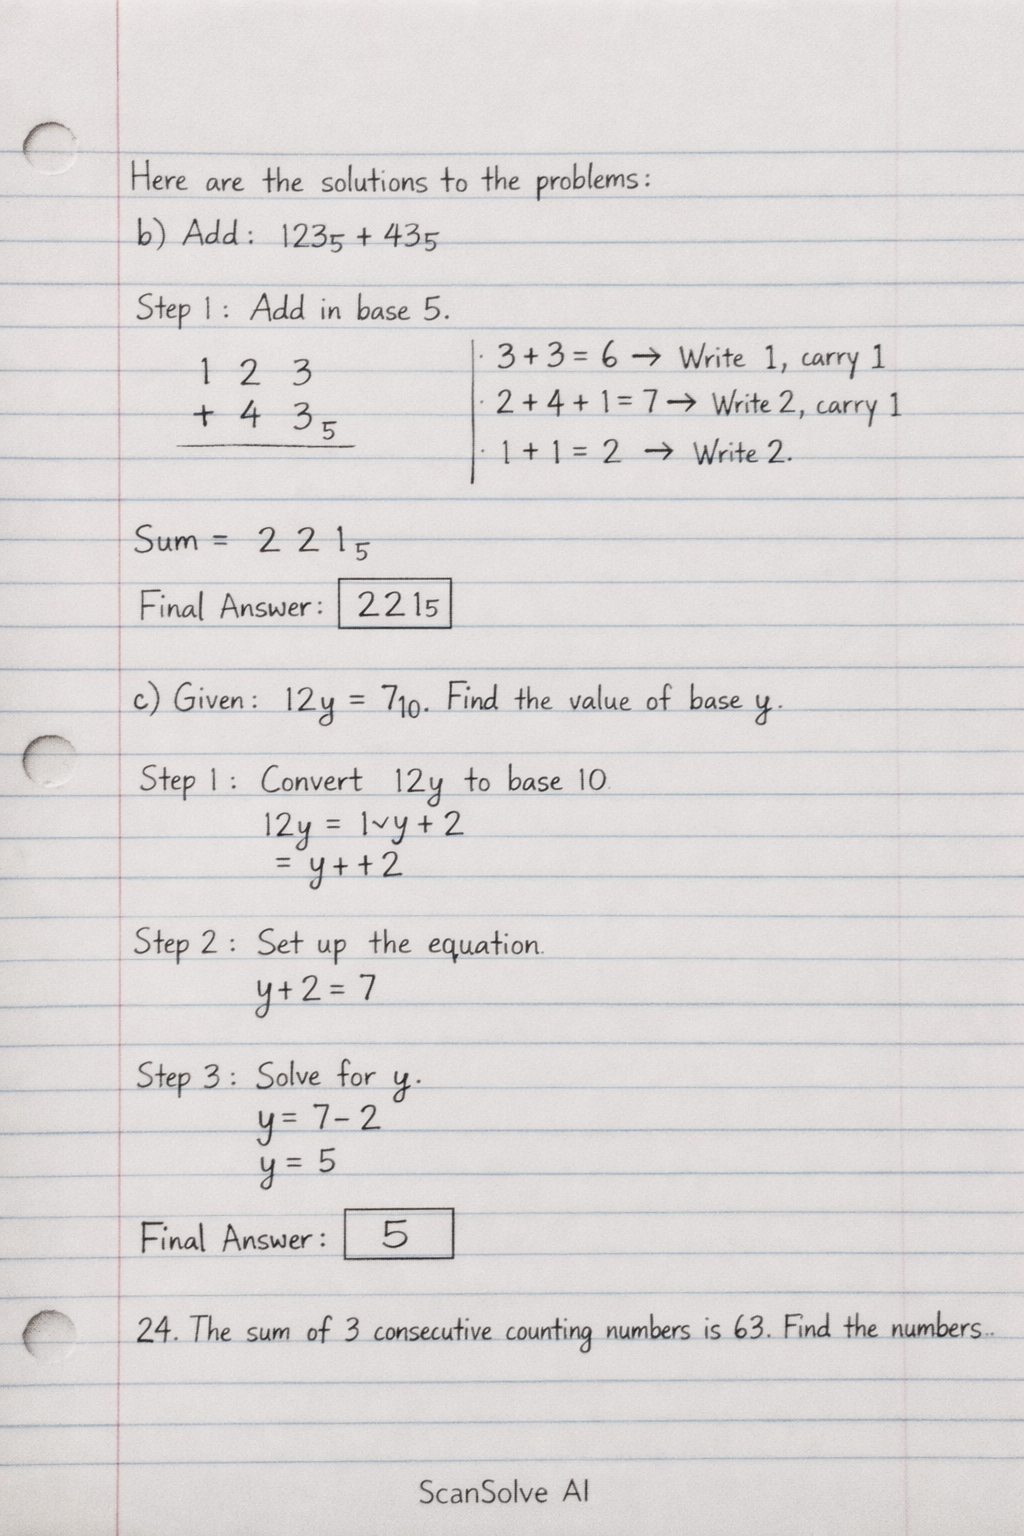 Here are the solutions to the problems:
b) Add: 123₅ + 43₅
Step 1: Add in base 5.
1 2 3
+ 4 3₅
· 3 + 3 = 6 → Write 1, carry 1
· 2 + 4 + 1 = 7 → Write 2, carry 1
· 1 + 1 = 2 → Write 2.
Sum = 2 2 1₅
Final Answer: 221₅
c) Given: 12y = 7₁₀. Find the value of base y.
Step 1: Convert 12y to base 10
12y = 1˅y + 2
= y + + 2
Step 2: Set up the equation.
y + 2 = 7
Step 3: Solve for y.
y = 7 - 2
y = 5
Final Answer: 5
24. The sum of 3 consecutive counting numbers is 63. Find the numbers..
ScanSolve AI